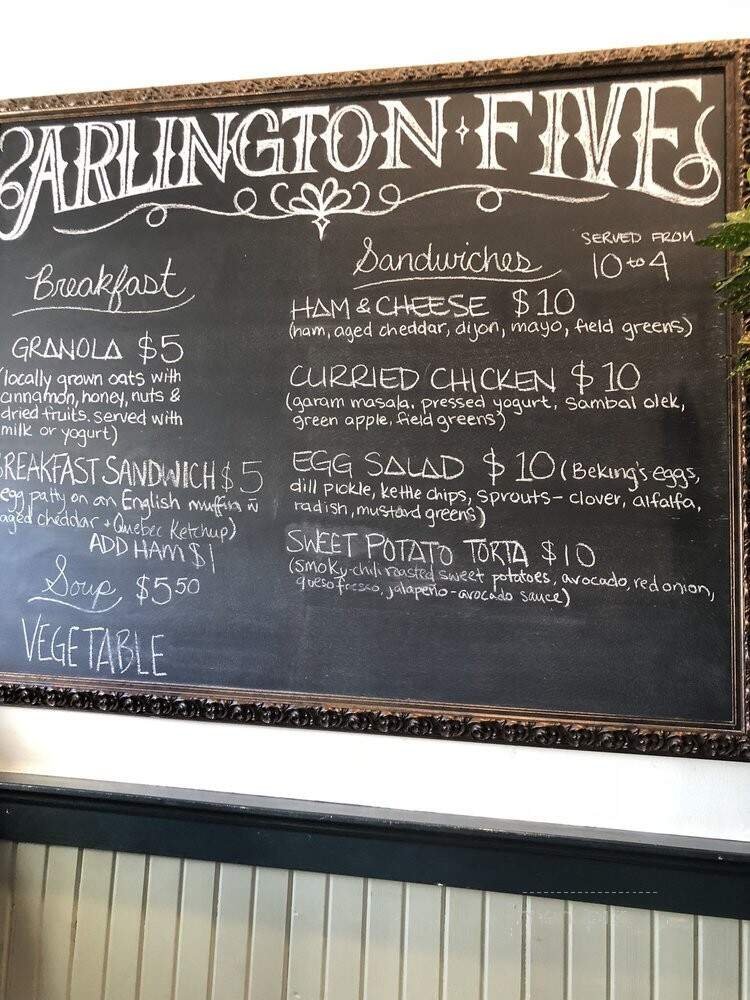 ARLINGTON FIVE
Breakfast
GRANOLA $5
(locally grown oats with
cinnamon, honey, nuts &
dried fruits. served with
milk or yogurt)
BREAKFAST SANDWICH $5
egg patty on an English muffin ñ
aged cheddar + Quebec Ketchup)
ADD HAM $1
Soup $5.50
VEGETABLE
Sandwiches
SERVED FROM
10 to 4
HAM & CHEESE $10
(ham, aged cheddar, dijon, mayo, field greens)
CURRIED CHICKEN $10
(garam masala, pressed yogurt, sambal olek,
green apple, field greens)
EGG SALAD $10 (Beking's eggs,
dill pickle, kettle chips, sprouts - clover, alfalfa,
radish, mustard greens)
SWEET POTATO TORTA $10
(smoky-chili roasted sweet potatoes, avocado, red onion,
queso fresco, jalapeño-avocado sauce)